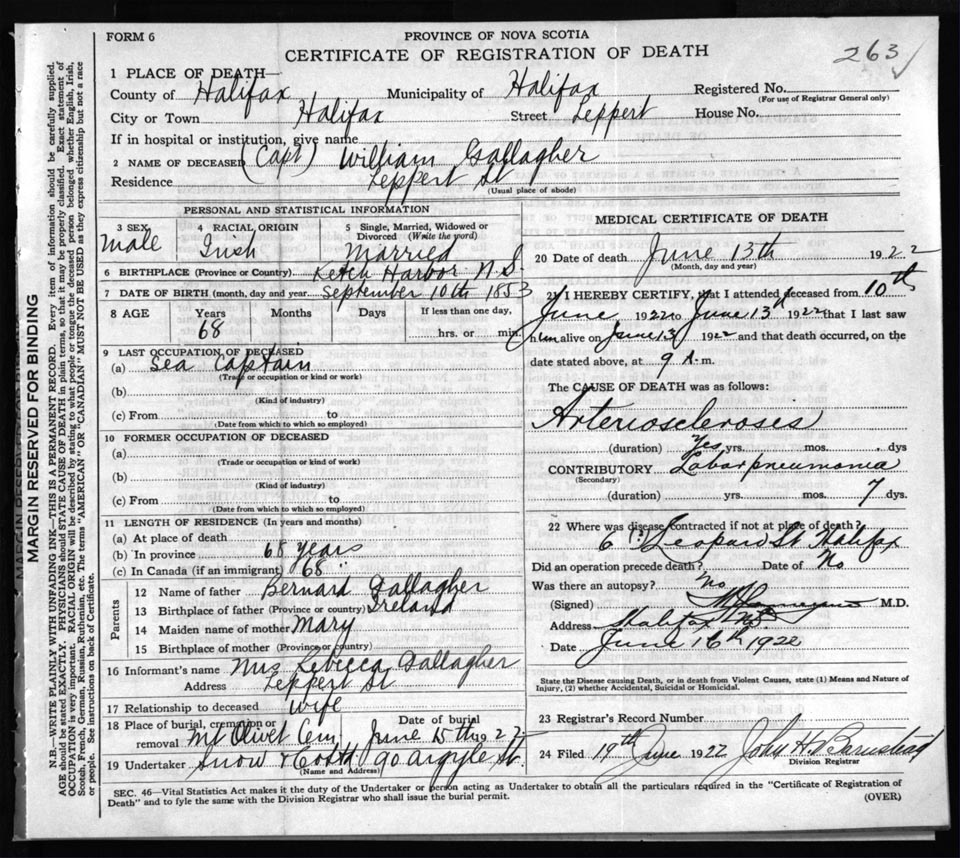 FORM 6
PROVINCE OF NOVA SCOTIA
CERTIFICATE OF REGISTRATION OF DEATH
263
MARGIN RESERVED FOR BINDING
N.B.—WRITE PLAINLY WITH UNFADING INK—THIS IS A PERMANENT RECORD. Every item of information should be carefully supplied.
AGE should be stated EXACTLY. PHYSICIANS should STATE CAUSE OF DEATH in plain terms, so that it may be properly classified. Exact statement of
OCCUPATION is very important. RACIAL ORIGIN will be described by stating to what people or tongue the deceased person belonged whether English, Irish,
Scotch, French, German, Russian, Ruthenian, etc. The terms "AMERICAN" OR "CANADIAN" MUST NOT BE USED as they express citizenship but not a race
or people. See instructions on back of Certificate.
1 PLACE OF DEATH—
County of Halifax Municipality of Halifax Registered No.
(For use of Registrar General only)
City or Town Halifax Street Leppert House No.
If in hospital or institution, give name
2 NAME OF DECEASED (Capt) William Gallagher
Residence Leppert St
(Usual place of abode)
PERSONAL AND STATISTICAL INFORMATION
3 SEX Male
4 RACIAL ORIGIN Irish
5 Single, Married, Widowed or Divorced (Write the word) Married
6 BIRTHPLACE (Province or Country) Ketch Harbor N.S.
7 DATE OF BIRTH (month, day and year September 10th 1853
8 AGE Years Months Days If less than one day,
68 hrs. or min.
9 LAST OCCUPATION OF DECEASED
(a) Sea Captain
(Trade or occupation or kind of work)
(b)
(Kind of industry)
(c) From to
(Date from which to which so employed)
10 FORMER OCCUPATION OF DECEASED
(a)
(Trade or occupation or kind of work)
(b)
(Kind of industry)
(c) From to
(Date from which to which so employed)
11 LENGTH OF RESIDENCE (In years and months)
(a) At place of death
(b) In province 68 years
(c) In Canada (if an immigrant) 68 "
Parents
12 Name of father Bernard Gallagher
13 Birthplace of father (Province or country) Ireland
14 Maiden name of mother Mary
15 Birthplace of mother (Province or country)
16 Informant's name Mrs Rebecca Gallagher
Address Leppert St
17 Relationship to deceased wife
18 Place of burial, cremation or removal Mt Olivet Cem Date of burial June 15th 1922
19 Undertaker Snow & Co Ltd 90 Argyle St.
(Name and Address)
MEDICAL CERTIFICATE OF DEATH
20 Date of death June 13th 1922
(Month, day and year)
21 I HEREBY CERTIFY, that I attended deceased from 10th
June 1922 to June 13th 1922 that I last saw
him alive on June 13 192 and that death occurred, on the
date stated above, at 9 A.m.
The CAUSE OF DEATH was as follows:
Arteriosclerosis
(duration) Yes yrs. mos. dys
CONTRIBUTORY Lobar pneumonia
(Secondary)
(duration) yrs. mos. 7 dys.
22 Where was disease contracted if not at place of death?
6 (?) Leopard St Halifax
Did an operation precede death? Date of No
Was there an autopsy? No
(Signed) M.D.
Address Halifax N.S.
Date June 16th 1922
State the Disease causing Death, or in death from Violent Causes, state (1) Means and Nature of
Injury, (2) whether Accidental, Suicidal or Homicidal.
23 Registrar's Record Number
24 Filed 19th June 1922 John H. Barnstead
Division Registrar
SEC. 46—Vital Statistics Act makes it the duty of the Undertaker or person acting as Undertaker to obtain all the particulars required in the "Certificate of Registration of
Death" and to fyle the same with the Division Registrar who shall issue the burial permit.
(OVER)